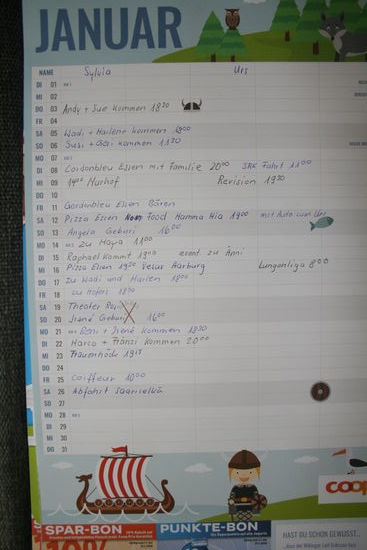 JANUAR
NAME Sylvia Urs
DI 01
MI 02
DO 03 Andy + Sue kommen 18 30
FR 04
SA 05 Wadi + Marlene kommen 19 00
SO 06 Susi + kommen 11 30
MO 07
DI 08 Cordonbleu Essen mit Familie 20 00 SRK Fahrt 11 00
MI 09 14 00 Murhof Revision 19 30
DO 10
FR 11 Cordonbleu Essen Bären
SA 12 Pizza Essen Food Mamma Mia 19 00 mit Auto von Urs
SO 13 Angela Geburi 16 00
MO 14 zu Maya 11 00
DI 15 Raphael kommt event zu Änni
MI 16 Pizza Essen 19 30 Aarburg Lungenliga 8 00
DO 17 zu Wadi und Marlen 18 00
FR 18 zu 18 30
SA 19 Theater
SO 20 Irené Geburi 16 00
MO 21 Beni + Irené kommen 18 30
DI 22 Marco + Fränzi kommen 20 00
MI 23 Traumhöck 19 15
DO 24
FR 25 Coiffeur 10 00
SA 26 Abfahrt Saariselkä
SO 27
MO 28
DI 29
MI 30
DO 31
coop
SPAR-BON
PUNKTE-BON
HAST DU SCHON GEWUSST...